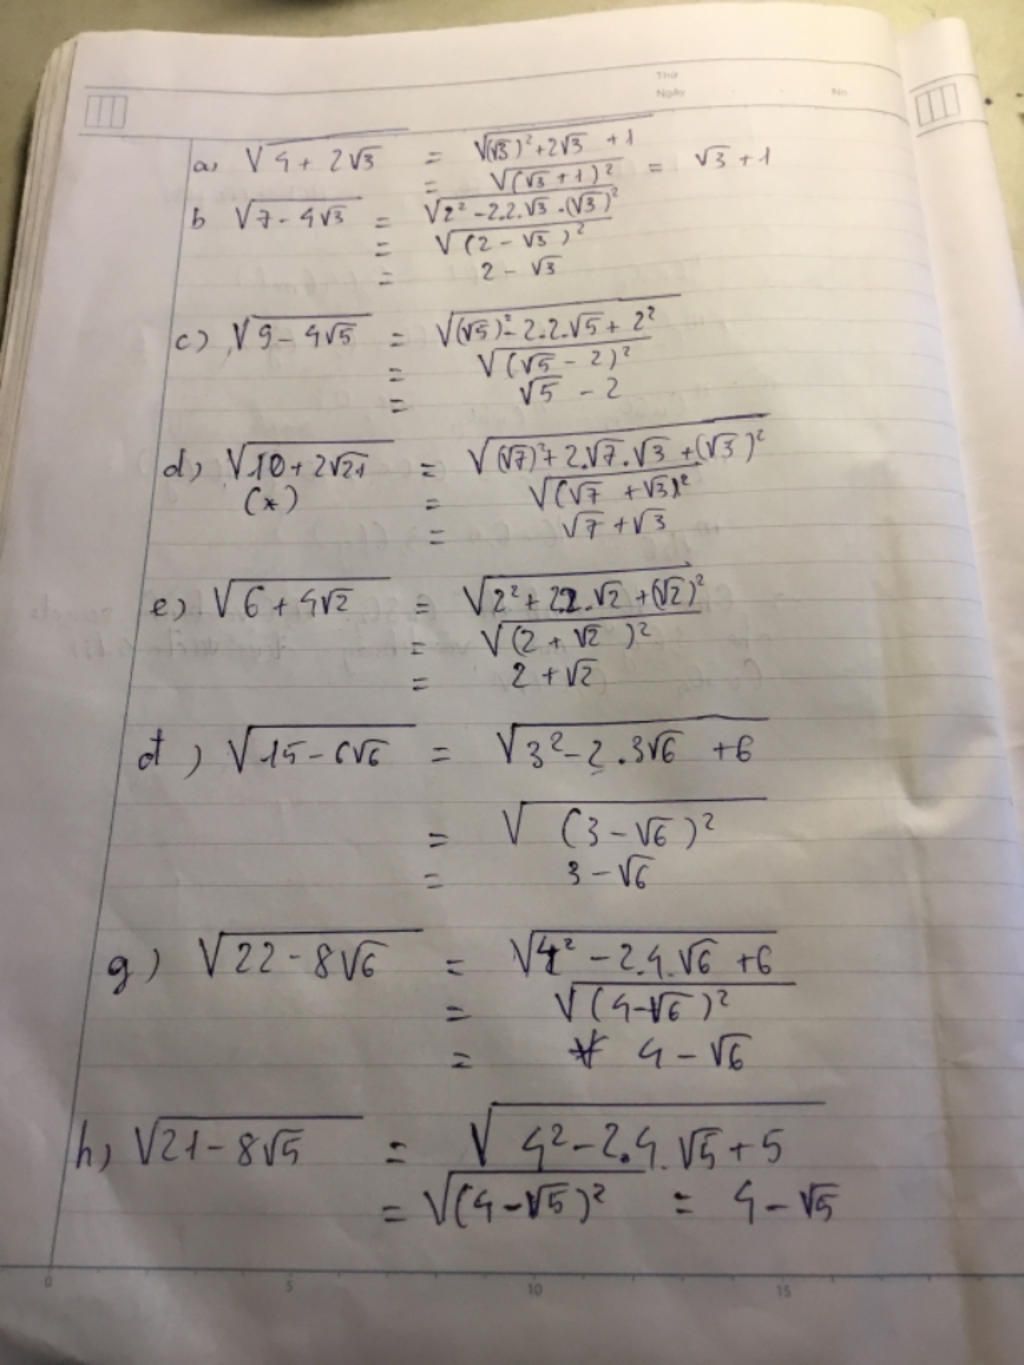 Thứ
Ngày
No
a, √(4 + 2√3) = √((√3)² + 2√3 + 1
= √(√3 + 1)² = √3 + 1
b √(7 - 4√3) = √(2² - 2.2.√3 . (√3)²
= √(2 - √3)²
= 2 - √3
c) √(9 - 4√5) = √((√5)² - 2.2.√5 + 2²
= √(√5 - 2)²
= √5 - 2
d) √(10 + 2√21) = √((√7)² + 2.√7.√3 + (√3)²
(*) = √(√7 + √3)²
= √7 + √3
e) √(6 + 4√2) = √(2² + 2.2.√2 + (√2)²
= √(2 + √2)²
= 2 + √2
đ) √(15 - 6√6) = √(3² - 2.3√6 + 6
= √(3 - √6)²
= 3 - √6
g) √(22 - 8√6) = √(4² - 2.4.√6 + 6
= √(4 - √6)²
= 4 - √6
h) √(21 - 8√5) = √(4² - 2.4.√5 + 5
= √(4 - √5)² = 4 - √5
0 5 10 15